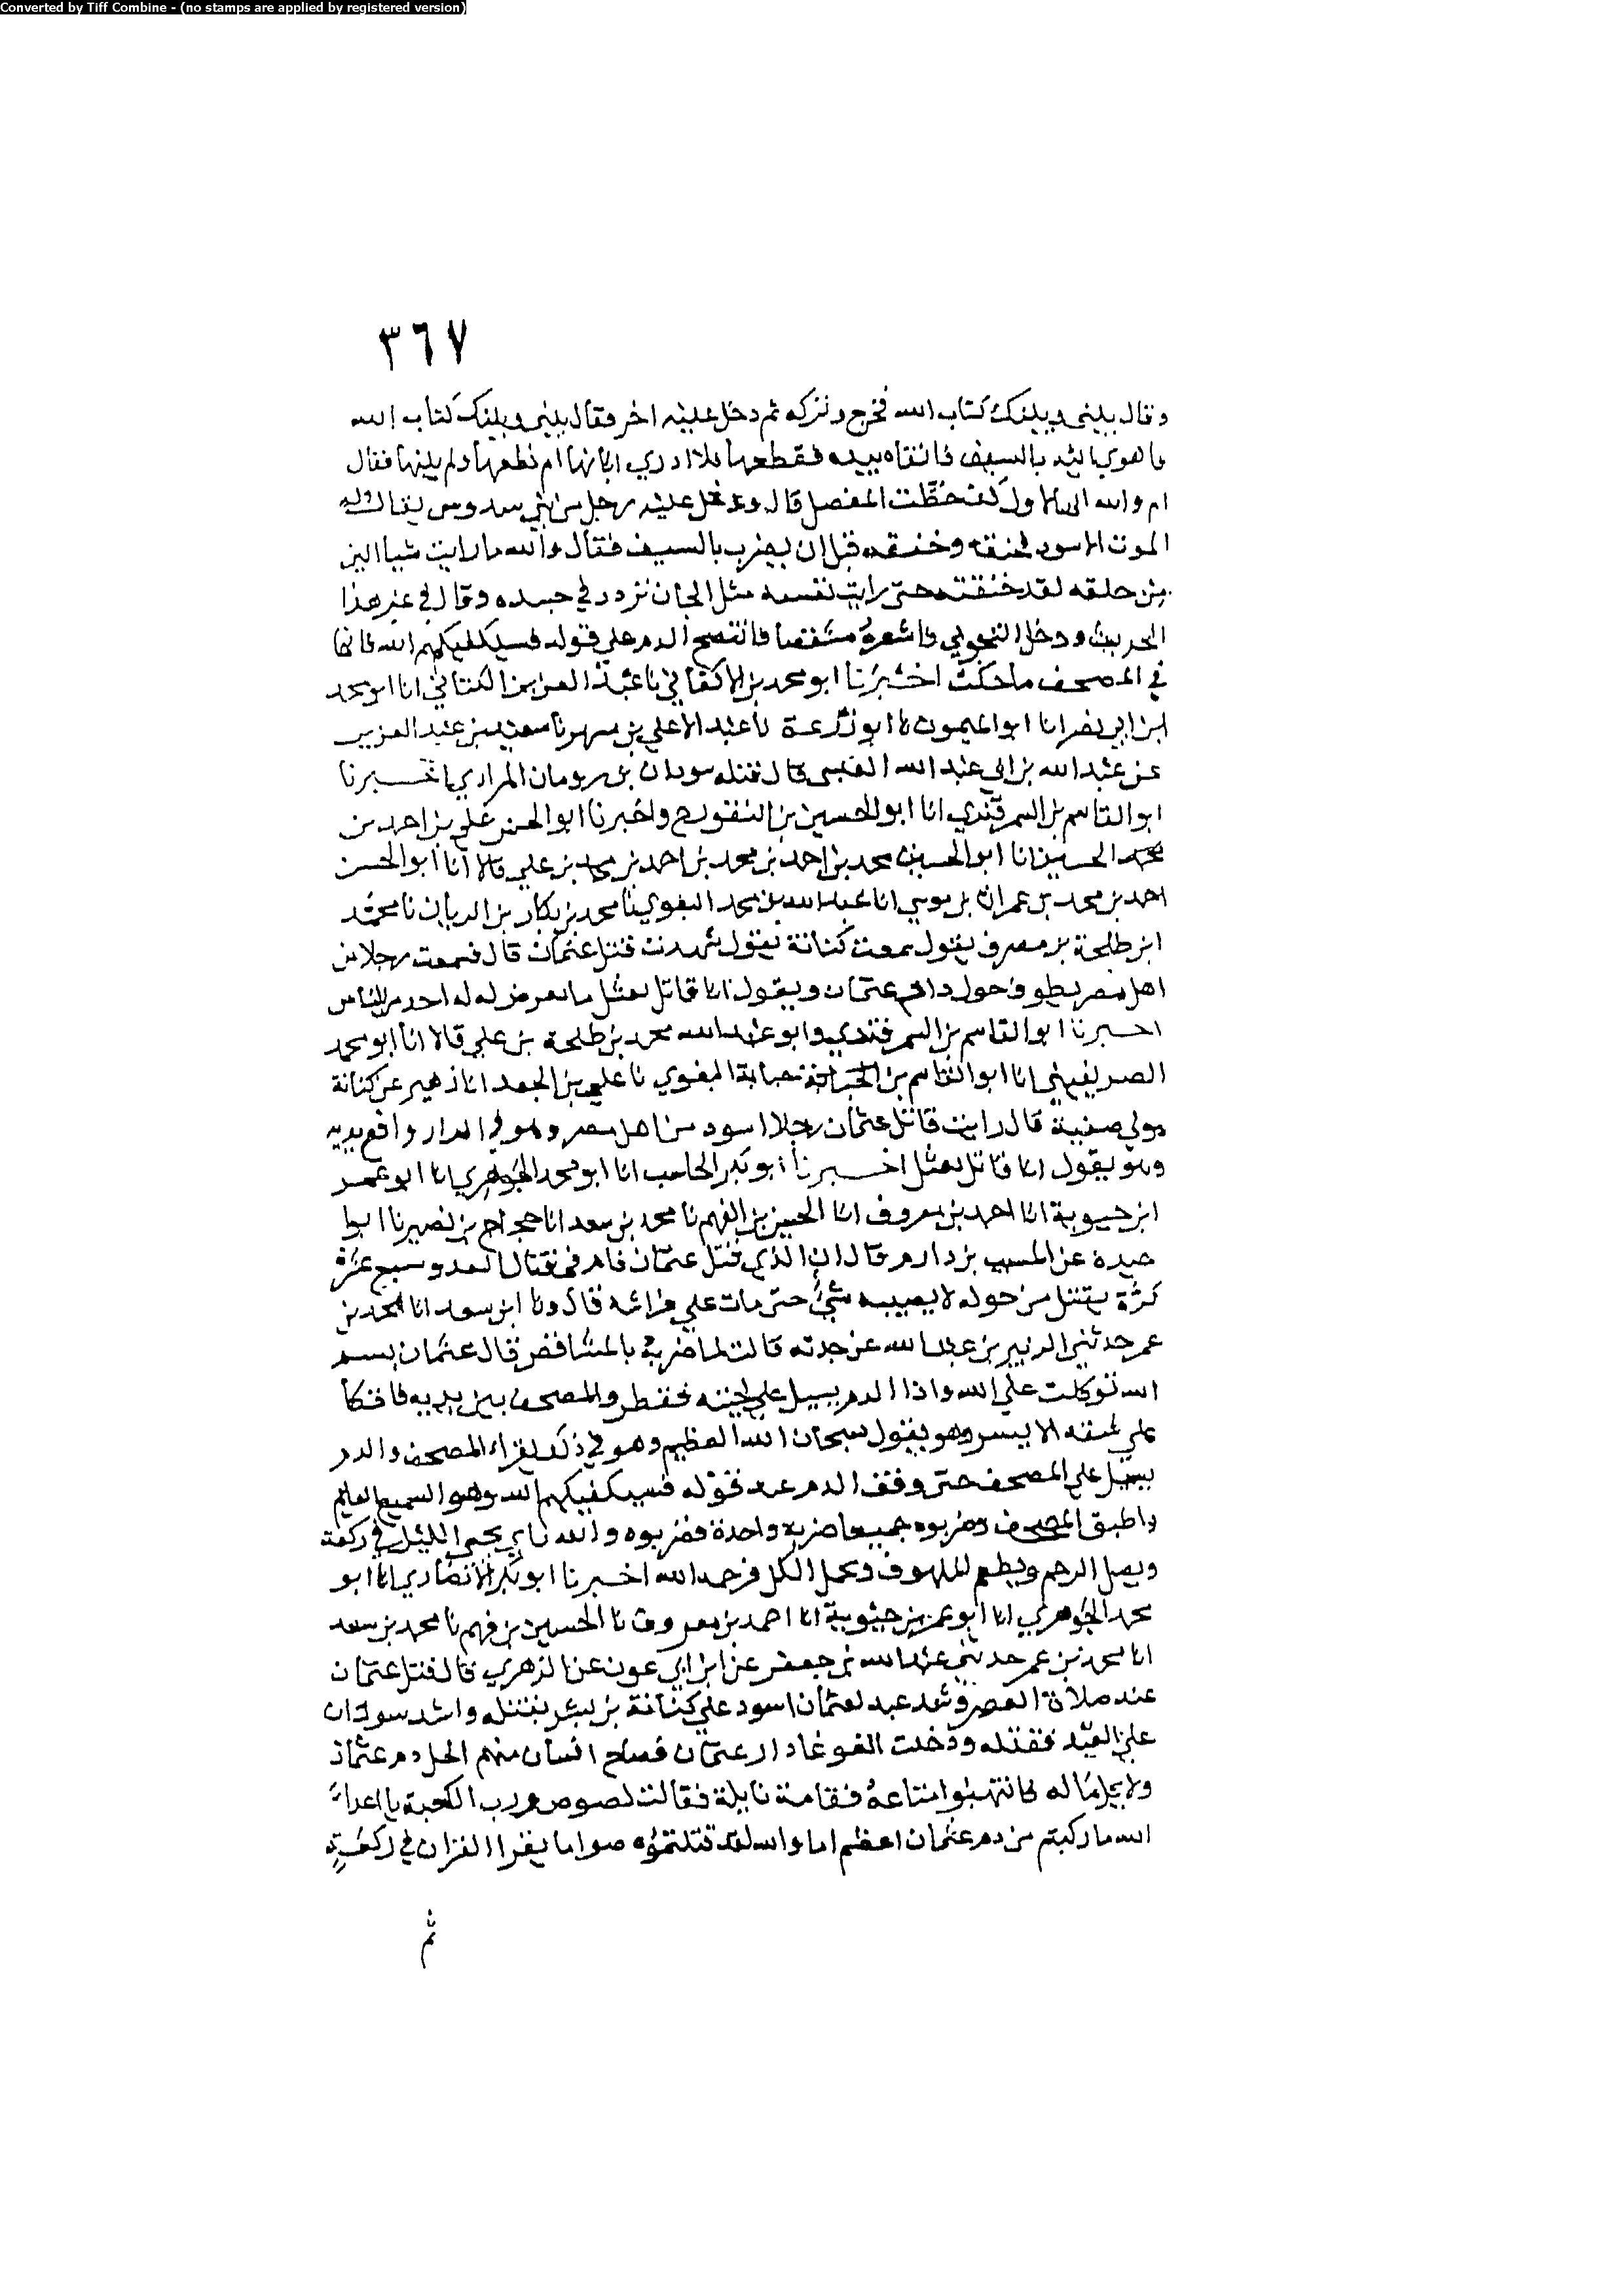 Converted by Tiff Combine - (no stamps are applied by registered version)
٣٦٧
وقال بيني وبينك كتاب الله فخرج وتركه ثم دخل عليه اخر فقال بيني وبينك كتاب الله
فاهوي اليه بالسيف فاتقاه بيده فقطعها فلا ادري ابانها ام قطعها ولم يبنها فقال
ام والله انها لاول كف خطت المفصل قال ودخل عليه رجل من بني سدوس يقال له
الموت الاسود فخنقه وخنقه قبل ان يضرب بالسيف فقال والله ما رايت شيا الين
من حلقه لقد خنقته حتى رايت نفسه مثل الجان تردد في جسده وقال في غير هذا
الحديث ودخل التجوبي فاشعره مشقصا فانتضح الدم علي قوله فسيكفيكهم الله فانها
في المصحف ما حكت اخبرنا ابو محمد بن الاكفاني نا عبد العزيز الكتاني انا ابو محمد
ابن ابي نصر انا ابو الميمون نا ابو زرعة نا عبد الاعلي بن مسهر نا سعيد بن عبد العزيز
عن عبد الله بن ابي عبد الله القيسي قال قتله سودان بن رومان المرادي اخبرنا
ابو القاسم بن السمرقندي انا ابو الحسين بن النقور ح واخبرنا ابو الحسن علي بن احمد بن
محمد الحسين انا ابو الحسين محمد بن احمد بن محمد بن احمد بن محمد بن علي قالا انا ابو الحسن
احمد بن محمد بن عمران بن موسي انا عبد الله بن محمد البغوي نا محمد بن بكار بن الريان نا محمد
ابن طلحة بن مصرف يقول سمعت كنانة يقول شهدت قتل عثمان قال فسمعت رجلا من
اهل مصر يطوف حول دار عثمان ويقول انا قاتل نعثل ما يعرض له احد من الناس
اخبرنا ابو القاسم بن السمرقندي وابو عبد الله محمد بن طلحة بن علي قالا انا ابو محمد
الصريفيني انا ابو القاسم بن حبابة البغوي نا علي بن الجعد انا زهير عن كنانة
مولي صفية قال رايت قاتل عثمان رجلا اسود من اهل مصر وهو في الدار رافع يديه
وهو يقول انا قاتل نعثل اخبرنا ابو بكر الحاسب انا ابو محمد الجوهري انا ابو عمر
ابن حيوية انا احمد بن معروف انا الحسين بن الفهم نا محمد بن سعد انا حجاج بن نصير نا ابو
عبيدة عن المسيب بن دارم قال ان الذي قتل عثمان قام في قتال العدو سبع عشرة
كرة يقتل من حوله لا يصيبه شي حتى مات علي فراشه قال ونا ابن سعد انا محمد بن
عمر حدثني الزبير بن عبد الله عن جدته قالت لما ضربه بالمشاقص قال عثمان بسم
الله توكلت علي الله واذا الدم يسيل علي لحيته يقطر والمصحف بين يديه فاتكا
علي شقه الايسر وهو يقول سبحان الله العظيم وهو في ذلك يقرا المصحف والدم
يسيل علي المصحف حتى وقف الدم عند قوله فسيكفيكهم الله وهو السميع العليم
واطبق المصحف وضربوه جميعا ضربة واحدة فضربوه والله بابي يحيي الليل في ركعة
ويصل الرحم ويطعم الملهوف ويحمل الكل فرحمه الله اخبرنا ابو بكر الانصاري انا ابو
محمد الجوهري انا ابو عمر بن حيوية انا احمد بن معروف نا الحسين بن فهم نا محمد بن سعد
انا محمد بن عمر حدثني عبد الله بن جعفر عن ابن ابي عون عن الزهري قال قتل عثمان
عند صلاة العصر وشد عبد لعثمان اسود علي كنانة بن بشر فقتله واشد سودان
علي العبد فقتله ودخلت الغوغا دار عثمان فصاح انسان منهم ايحل دم عثمان
ولا يحل ماله فانتهبوا متاعه فقامت نايلة فقالت لصوص ورب الكعبة يا اعداء
الله ما ركبتم من دم عثمان اعظم اما والله لقد قتلتموه صواما يقرا القران في ركعة
ثم